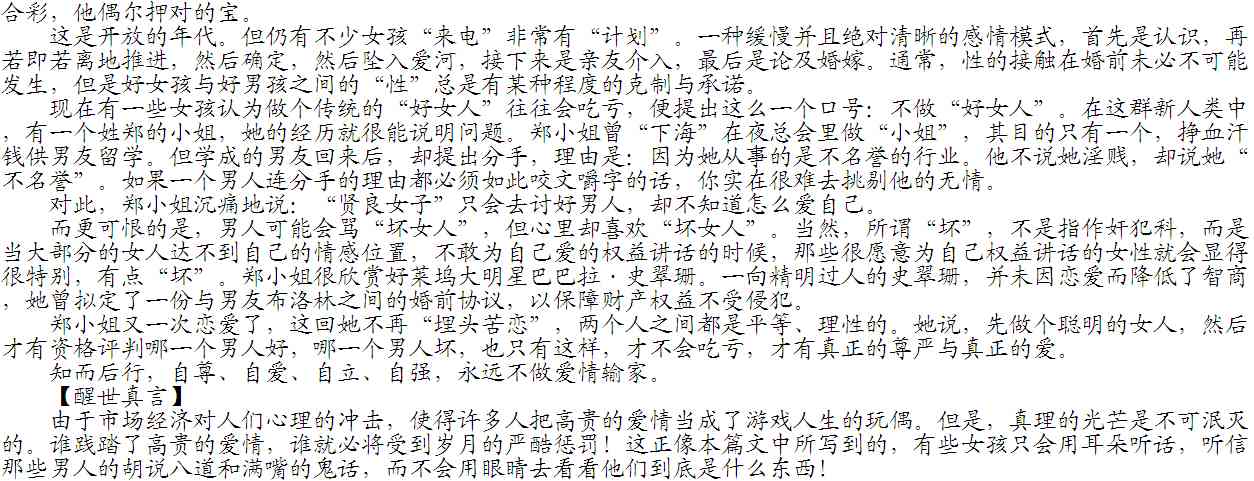 合彩，他偶尔押对的宝。
这是开放的年代。但仍有不少女孩“来电”非常有“计划”。一种缓慢并且绝对清晰的感情模式，首先是认识，再
若即若离地推进，然后确定，然后坠入爱河，接下来是亲友介入，最后是论及婚嫁。通常，性的接触在婚前未必不可能
发生，但是好女孩与好男孩之间的“性”总是有某种程度的克制与承诺。
现在有一些女孩认为做个传统的“好女人”往往会吃亏，便提出这么一个口号：不做“好女人”。在这群新人类中
，有一个姓郑的小姐，她的经历就很能说明问题。郑小姐曾“下海”在夜总会里做“小姐”，其目的只有一个，挣血汗
钱供男友留学。但学成的男友回来后，却提出分手，理由是：因为她从事的是不名誉的行业。他不说她淫贱，却说她“
不名誉”。如果一个男人连分手的理由都必须如此咬文嚼字的话，你实在很难去挑剔他的无情。
对此，郑小姐沉痛地说：“贤良女子”只会去讨好男人，却不知道怎么爱自己。
而更可恨的是，男人可能会骂“坏女人”，但心里却喜欢“坏女人”。当然，所谓“坏”，不是指作奸犯科，而是
当大部分的女人达不到自己的情感位置，不敢为自己爱的权益讲话的时候，那些很愿意为自己权益讲话的女性就会显得
很特别，有点“坏”。郑小姐很欣赏好莱坞大明星巴巴拉·史翠珊。一向精明过人的史翠珊，并未因恋爱而降低了智商
，她曾拟定了一份与男友布洛林之间的婚前协议，以保障财产权益不受侵犯。
郑小姐又一次恋爱了，这回她不再“埋头苦恋”，两个人之间都是平等、理性的。她说，先做个聪明的女人，然后
才有资格评判哪一个男人好，哪一个男人坏，也只有这样，才不会吃亏，才有真正的尊严与真正的爱。
知而后行，自尊、自爱、自立、自强，永远不做爱情输家。
【醒世真言】
由于市场经济对人们心理的冲击，使得许多人把高贵的爱情当成了游戏人生的玩偶。但是，真理的光芒是不可泯灭
的。谁践踏了高贵的爱情，谁就必将受到岁月的严酷惩罚！这正像本篇文中所写到的，有些女孩只会用耳朵听话，听信
那些男人的胡说八道和满嘴的鬼话，而不会用眼睛去看看他们到底是什么东西！